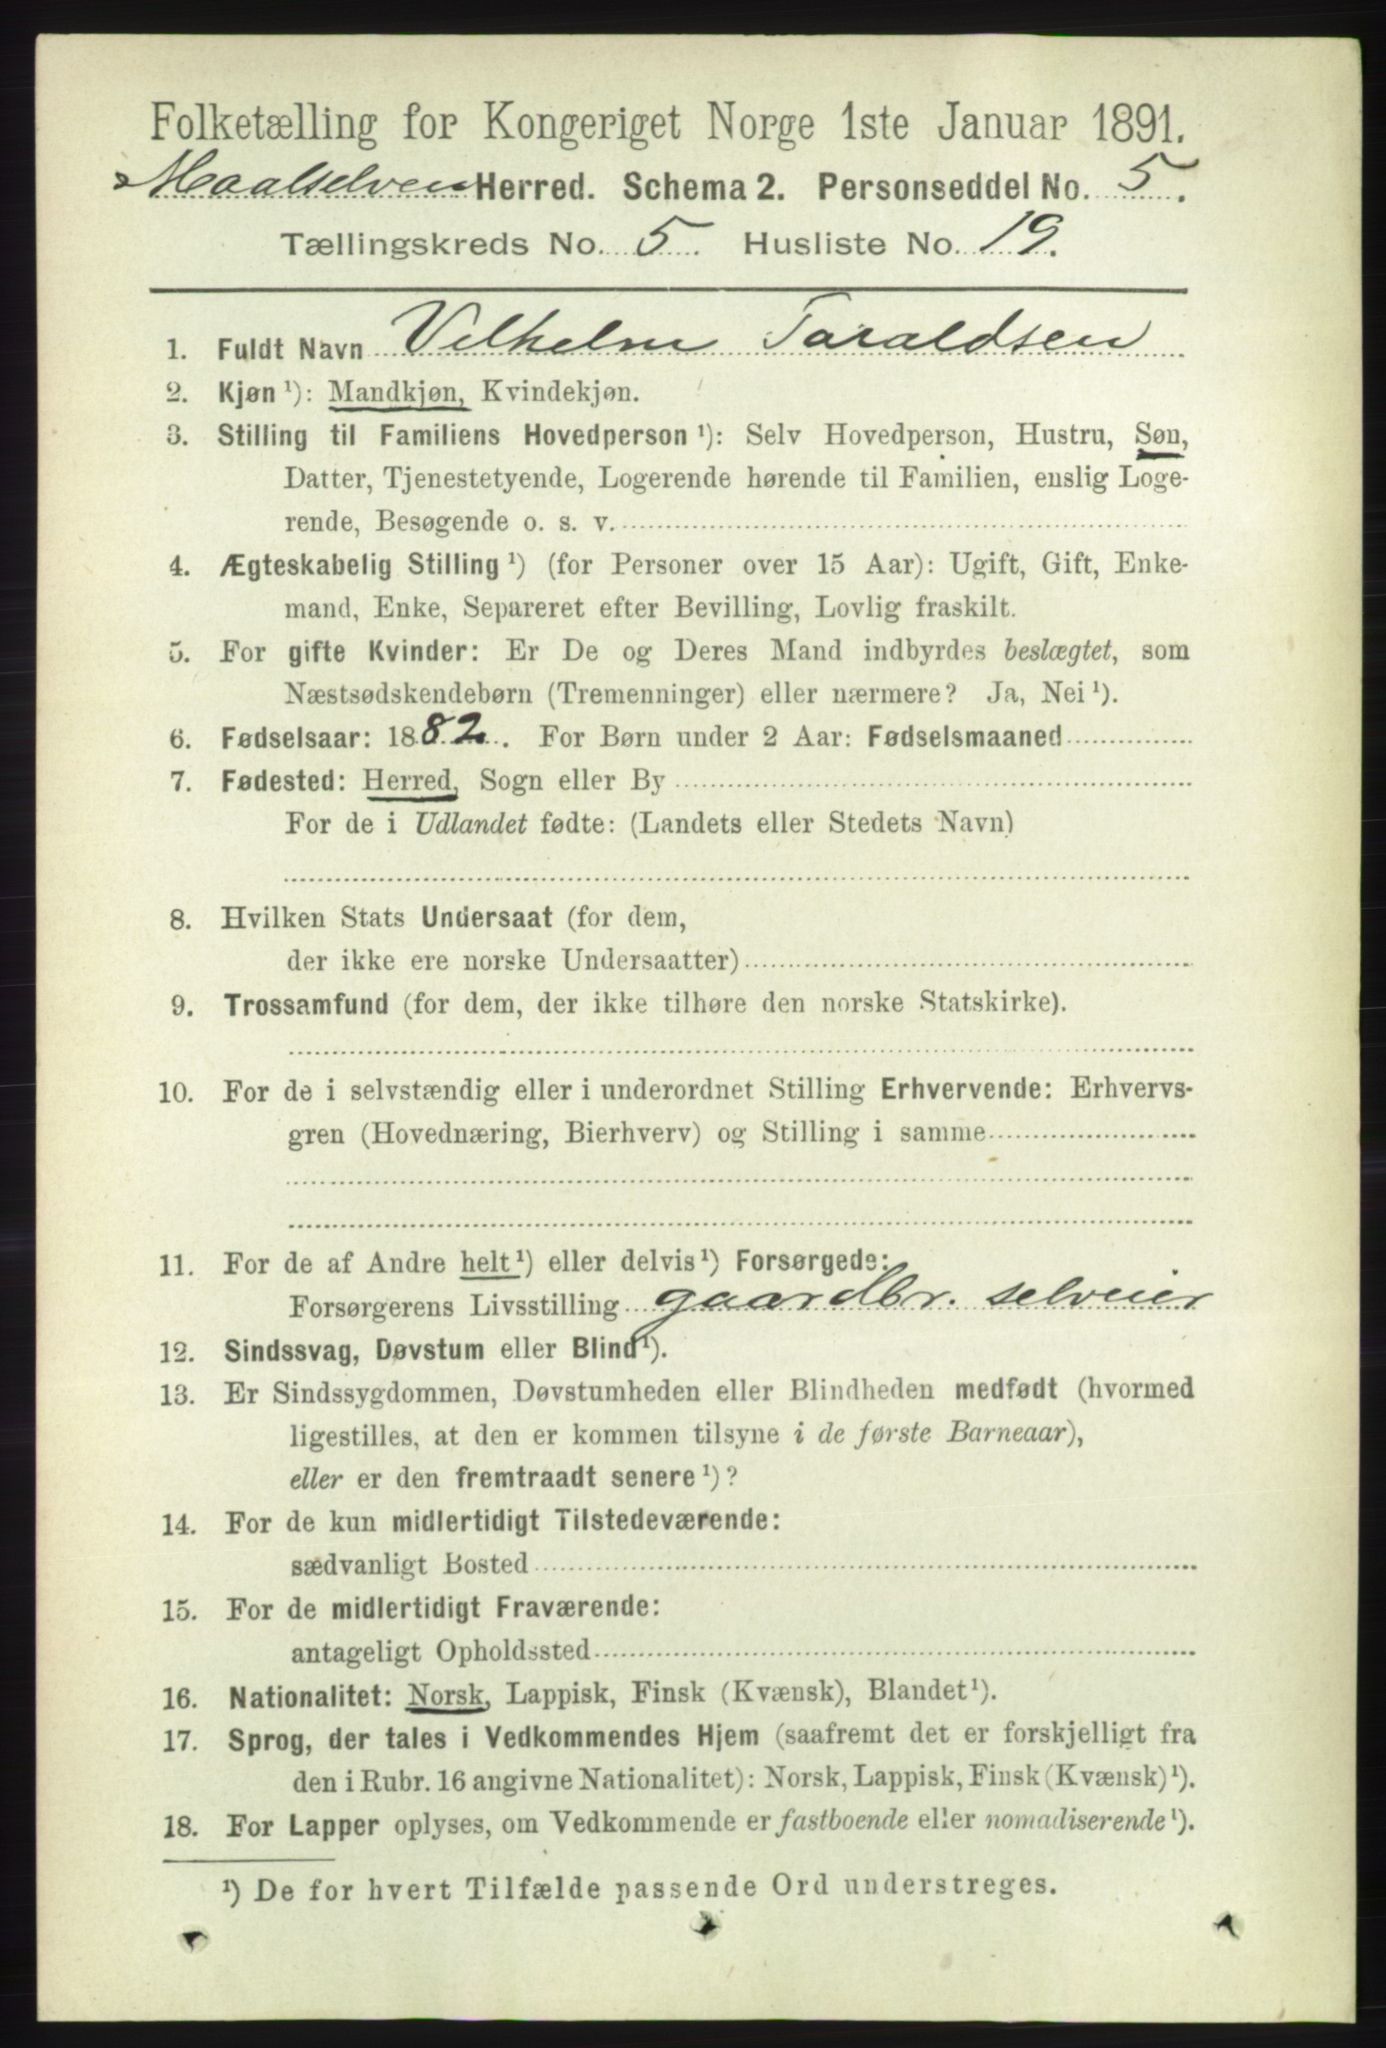 Folketælling for Kongeriget Norge 1ste Januar 1891.
Maalselven Herred. Schema 2. Personseddel No. 5.
Tællingskreds No. 5. Husliste No. 19.
1. Fuldt Navn Vilhelm Taraldsen
2. Kjøn ¹): Mandkjøn, Kvindekjøn.
3. Stilling til Familiens Hovedperson ¹): Selv Hovedperson, Hustru, Søn,
Datter, Tjenestetyende, Logerende hørende til Familien, enslig Loge-
rende, Besøgende o. s. v.
4. Ægteskabelig Stilling ¹) (for Personer over 15 Aar): Ugift, Gift, Enke-
mand, Enke, Separeret efter Bevilling, Lovlig fraskilt.
5. For gifte Kvinder: Er De og Deres Mand indbyrdes beslægtet, som
Næstsødskendebørn (Tremenninger) eller nærmere? Ja, Nei ¹).
6. Fødselsaar: 1882. For Børn under 2 Aar: Fødselsmaaned
7. Fødested: Herred, Sogn eller By
For de i Udlandet fødte: (Landets eller Stedets Navn)
8. Hvilken Stats Undersaat (for dem,
der ikke ere norske Undersaatter)
9. Trossamfund (for dem, der ikke tilhøre den norske Statskirke).
10. For de i selvstændig eller i underordnet Stilling Erhvervende: Erhvervs-
gren (Hovednæring, Bierhverv) og Stilling i samme
11. For de af Andre helt ¹) eller delvis ¹) Forsørgede:
Forsørgerens Livsstilling gaardbr. selveier
12. Sindssvag, Døvstum eller Blind ¹).
13. Er Sindssygdommen, Døvstumheden eller Blindheden medfødt (hvormed
ligestilles, at den er kommen tilsyne i de første Barneaar),
eller er den fremtraadt senere ¹)?
14. For de kun midlertidigt Tilstedeværende:
sædvanligt Bosted
15. For de midlertidigt Fraværende:
antageligt Opholdssted
16. Nationalitet: Norsk, Lappisk, Finsk (Kvænsk), Blandet ¹).
17. Sprog, der tales i Vedkommendes Hjem (saafremt det er forskjelligt fra
den i Rubr. 16 angivne Nationalitet): Norsk, Lappisk, Finsk (Kvænsk) ¹).
18. For Lapper oplyses, om Vedkommende er fastboende eller nomadiserende ¹).
¹) De for hvert Tilfælde passende Ord understreges.